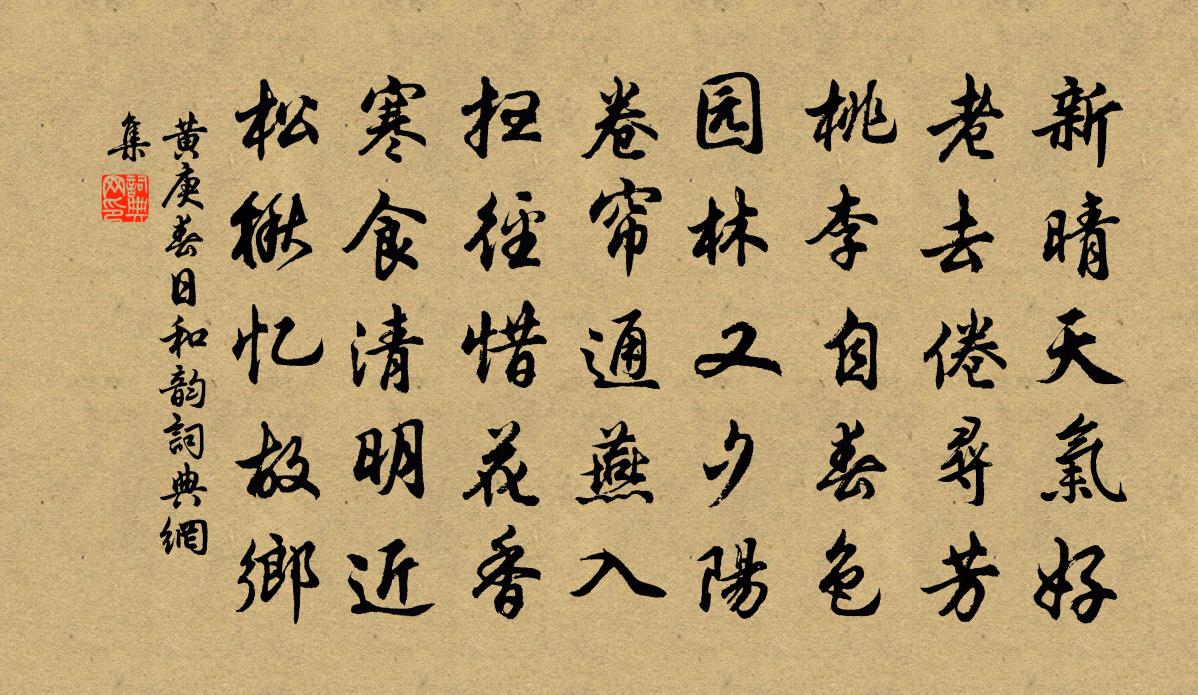 新晴天氣好
老去倦尋芳
桃李自春色
园林又夕陽
卷帘通燕入
扫徑惜花香
寒食清明近
松楸忆故鄉
黄庚春日和韵詞典網
集
詞典
网印